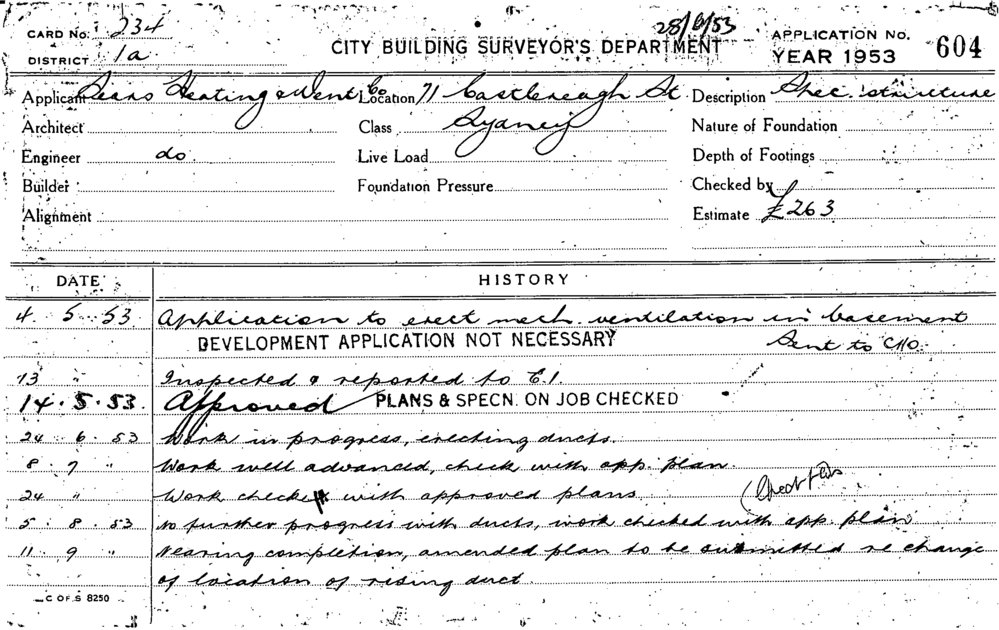 28/6/53
CARD No. 234
CITY BUILDING SURVEYOR'S DEPARTMENT
APPLICATION No.
YEAR 1953
604
DISTRICT 1a
Applicant Sears Heating & Vent Co Location 71 Castlereagh St Description Spec. structure
Architect Class Sydney Nature of Foundation
Engineer do Live Load Depth of Footings
Builder Foundation Pressure Checked by
Alignment Estimate £263
DATE HISTORY
4 . 5 . 53 Application to erect mech. ventilation in basement
DEVELOPMENT APPLICATION NOT NECESSARY Sent to CHO.
13 " Inspected & reported to E.I.
14 . 5 . 53. Approved PLANS & SPECN. ON JOB CHECKED
24 . 6 . 53 Work in progress, erecting ducts.
8 . 7 " Work well advanced, check with app. plan.
24 " Work checked with approved plans
5 . 8 . 53 No further progress with ducts, work checked with app. plan
11 . 9 " Nearing completion, amended plan to be submitted re change
of location of rising duct.
C OF S 8250